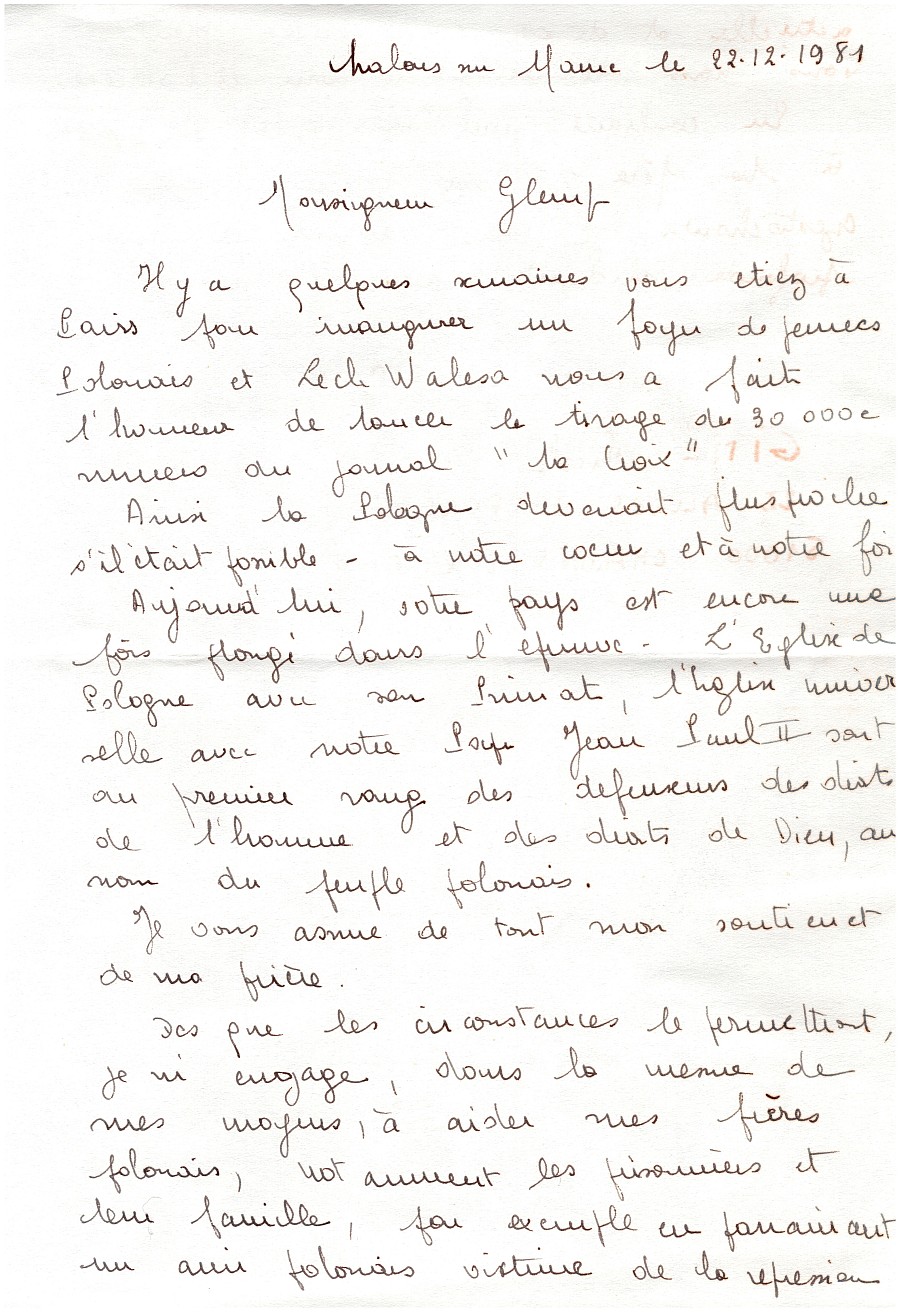 chalons sur Marne le 22.12.1981
Monseigneur Glemp
Il y a quelques semaines vous etiez à
Paris pour inaugurer un foyer de jeunes
Polonais et Lech Walesa nous a fait
l'honneur de lancer le tirage du 30 000e
numero du journal "la Croix"
Ainsi la Pologne devenait plus proche
s'il était possible - à notre coeur et à notre foi
Aujourd'hui, votre pays est encore une
fois plongé dans l'épreuve - L'Eglise de
Pologne avec son Primat, l'Eglise univer
selle avec notre Pape Jean Paul II sont
au premier rang des defenseurs des droits
de l'homme et des droits de Dieu, au
nom du peuple polonais.
Je vous assure de tout mon soutien et
de ma prière.
Des que les circonstances le permettront,
je m'engage, dans la mesure de
mes moyens, à aider mes frères
polonais, notamment les prisonniers et
leur famille, par exemple en parrainant
un ami polonais victime de la repression